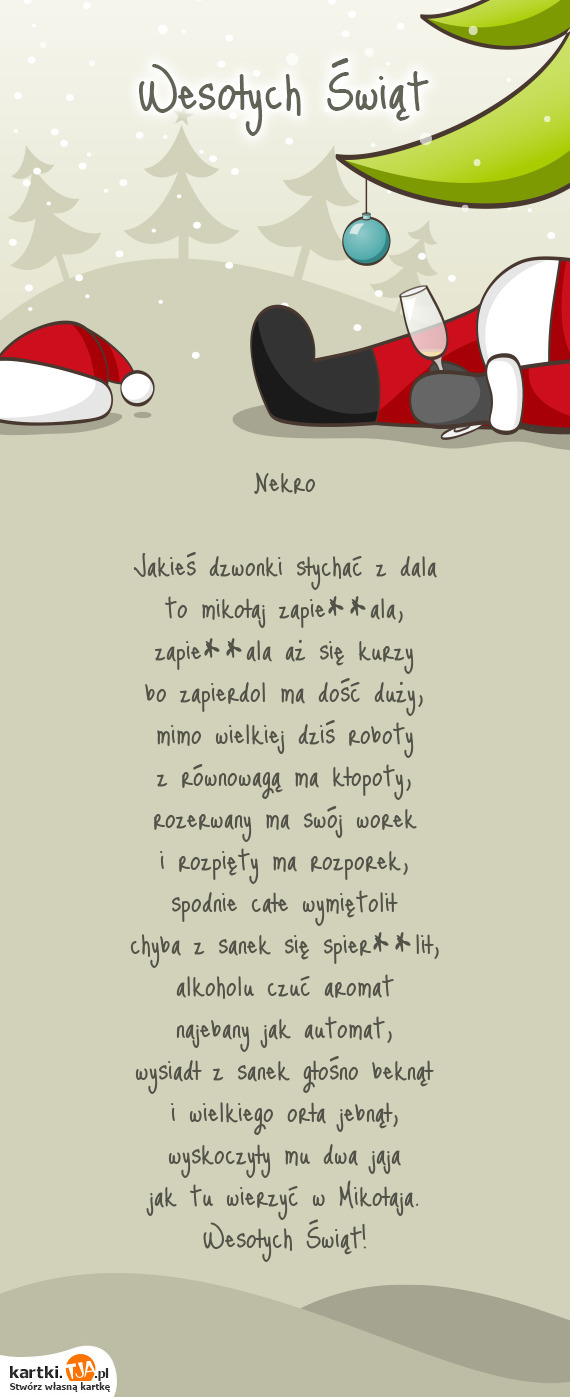 Wesołych Świąt
Nekro
Jakieś dzwonki słychać z dala
to mikołaj zapie**ala,
zapie**ala aż się kurzy
bo zapierdol ma dość duży,
mimo wielkiej dziś roboty
z równowagą ma kłopoty,
rozerwany ma swój worek
i rozpięty ma rozporek,
spodnie całe wymiętolił
chyba z sanek się spier**lił,
alkoholu czuć aromat
najebany jak automat,
wysiadł z sanek głośno beknął
i wielkiego orła jebnął,
wyskoczyły mu dwa jaja
jak tu wierzyć w Mikołaja.
Wesołych Świąt!
kartki.TJA.pl
Stwórz własną kartkę